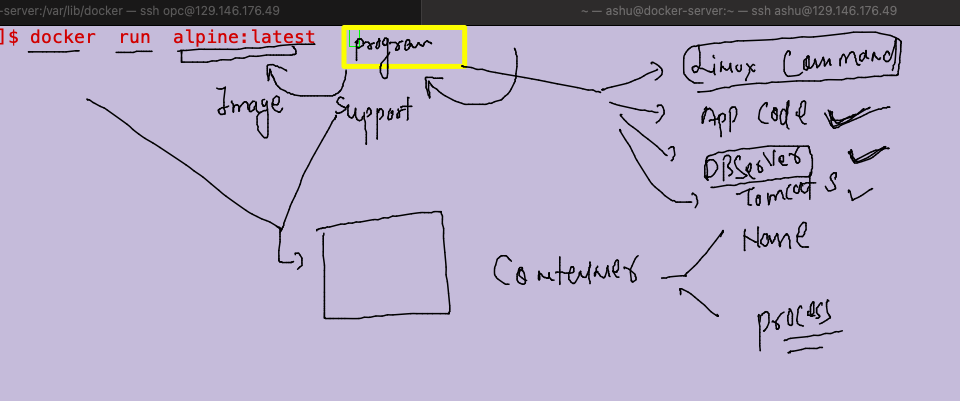 -server:/var/lib/docker — ssh opc@129.146.176.49
~ — ashu@docker-server:~ — ssh ashu@129.146.176.49
]$ docker run alpine:latest program
Linux Command
Image
Support
App Code
DBServer
Tomcat S
Name
Container
process